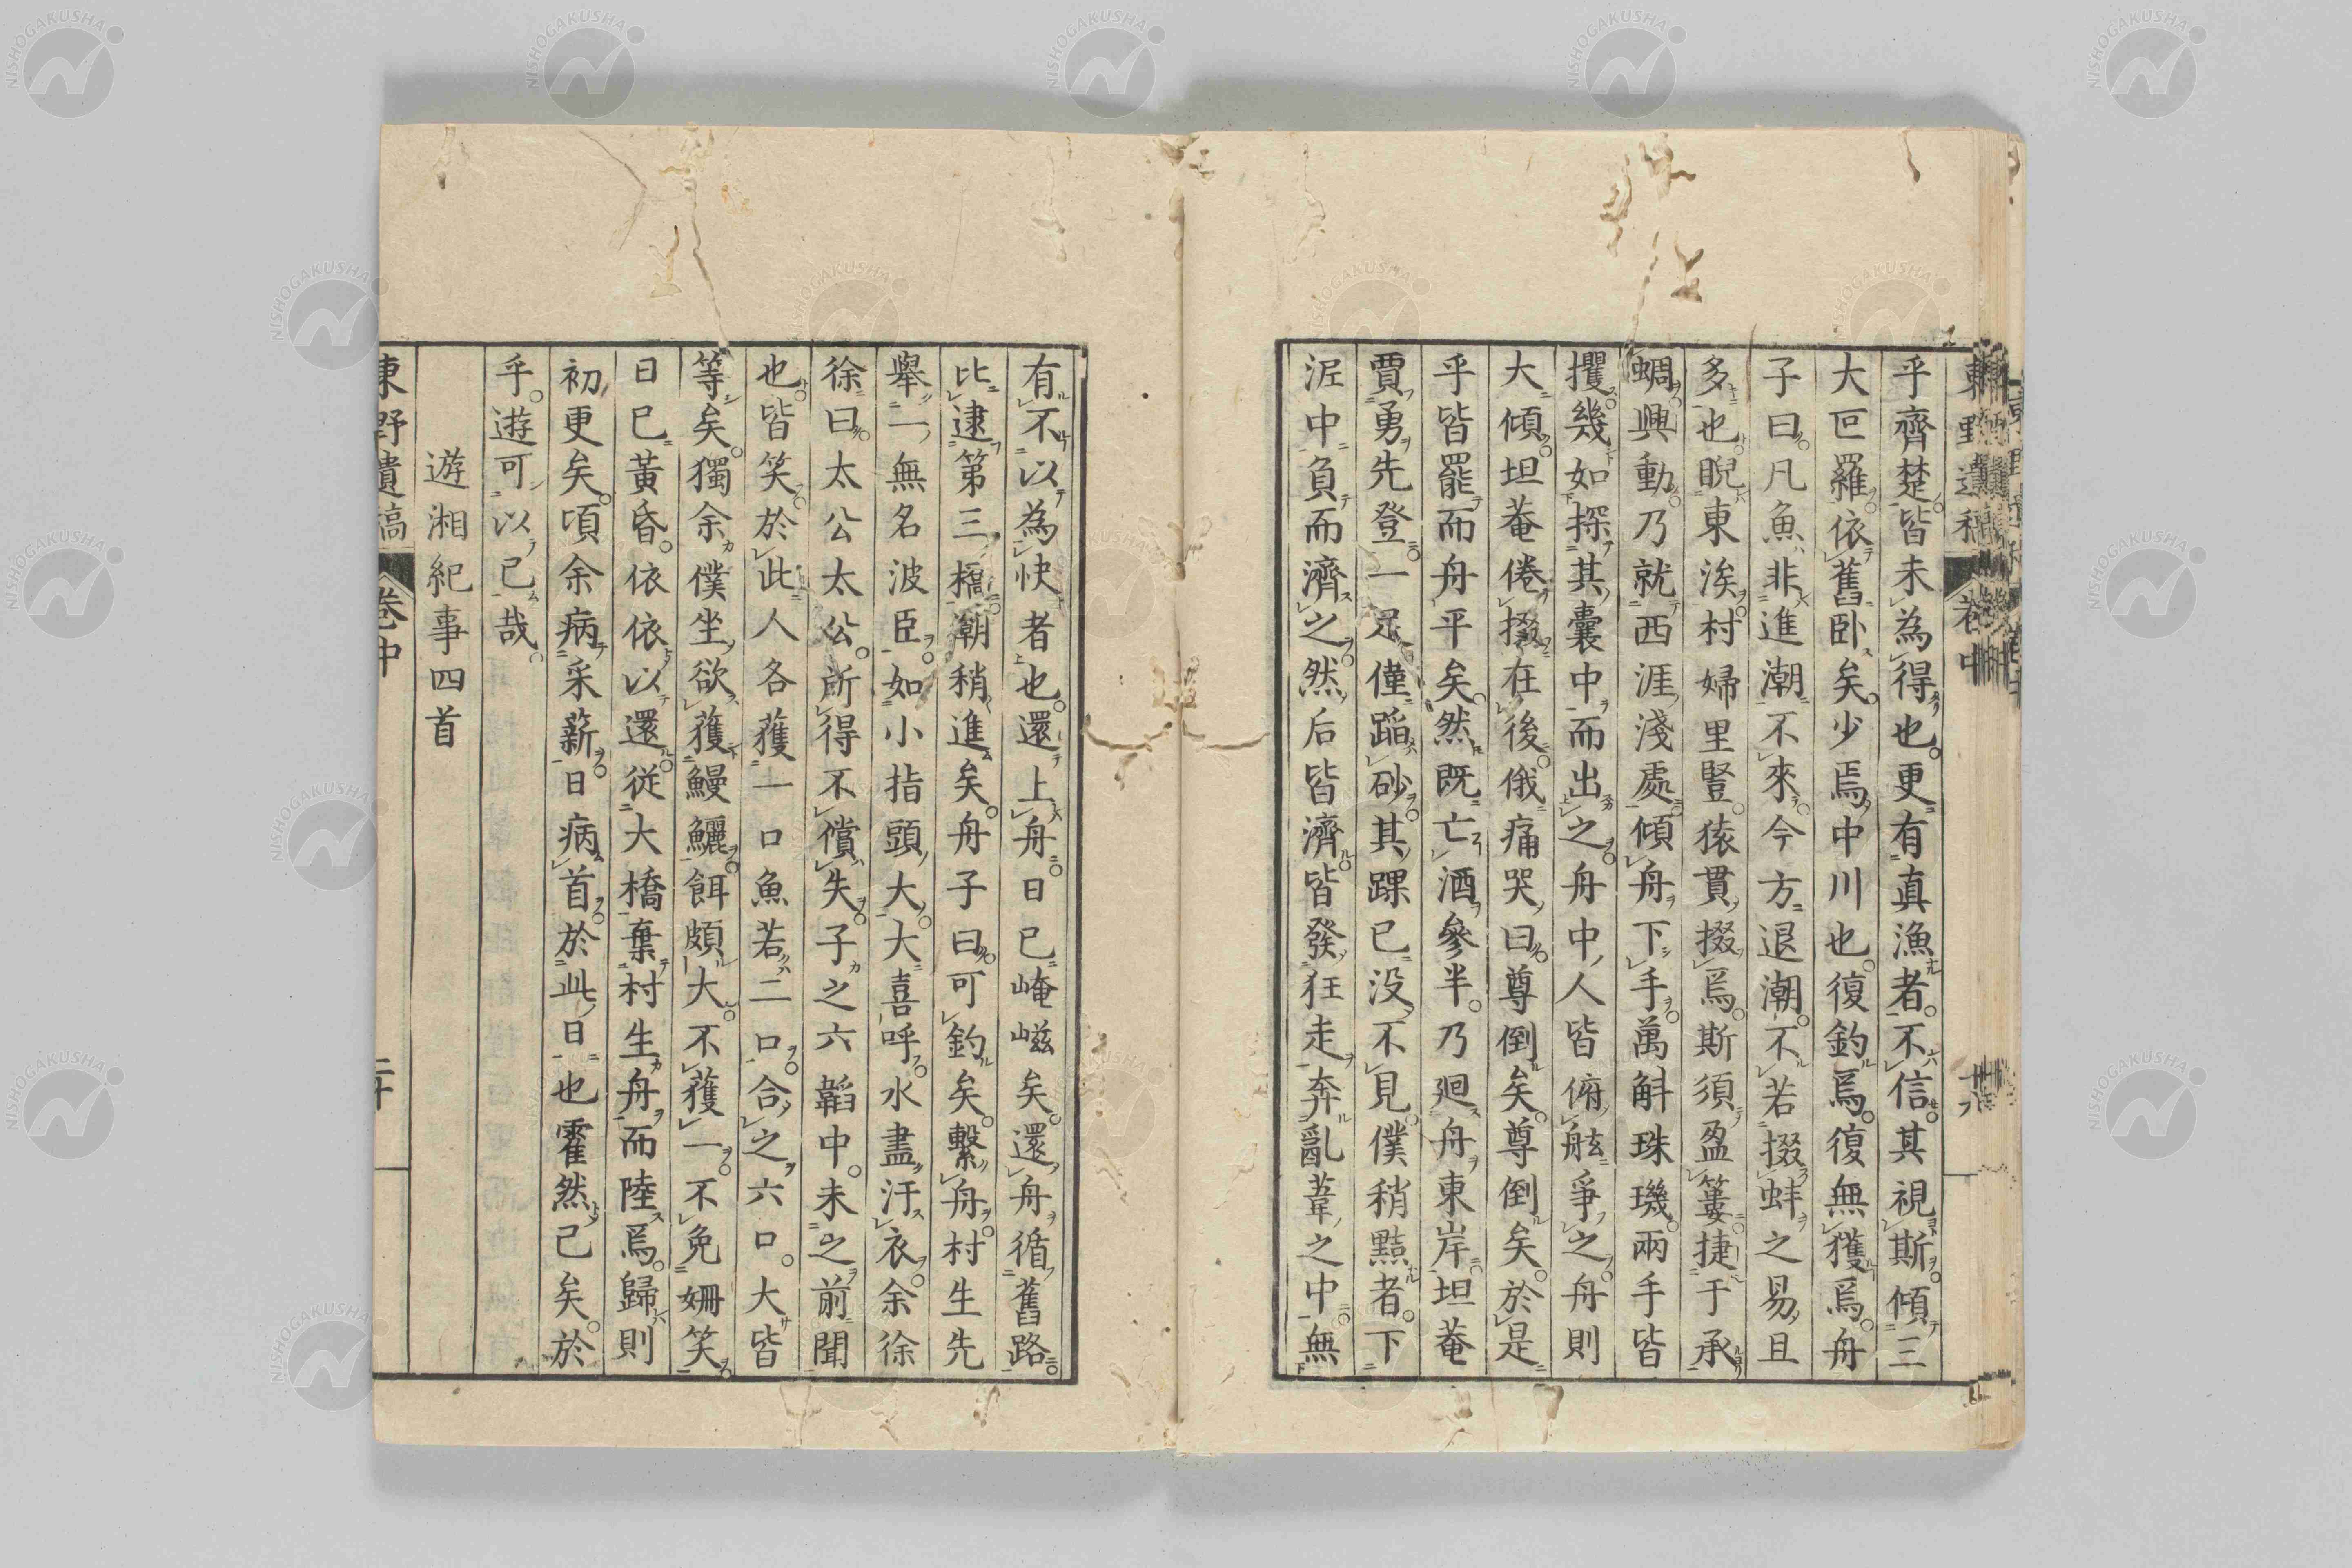 乎齊楚皆未為得也更有真漁者不信其視斯傾三
大叵羅依舊卧矣少焉中川也復釣焉復無獲焉舟
子曰凡魚非進潮不來今方退潮不若掇蚌之易且
多也睨東涘村婦里豎猿貫掇焉斯須盈簍捷于承
蜩興動乃就西涯淺處傾舟下手萬斛珠璣兩手皆
攫幾如探其囊中而出之舟中人皆俯舷爭之舟則
大傾坦菴倦掇在後俄痛哭曰尊倒矣尊倒矣於是
乎皆罷而舟平矣然既亡酒參半乃廻舟東岸坦菴
賈勇先登一足僅蹈砂其踝已没不見僕稍黠者下
泥中負而濟之然后皆濟皆發狂走奔亂葦之中無
有不以為快者也還上舟日已崦嵫矣還舟循舊路
比逮第三橋潮稍進矣舟子曰可釣矣繫舟村生先
舉一無名波臣如小指頭大大喜呼水盡汙衣余徐
徐曰太公太公所得不償失子之六韜中未之前聞
也皆笑於此人各獲一口魚若二口合之六口大皆
等矣獨余僕坐欲獲鰻鱺餌頗大不獲一不免姍笑
日已黃昏依依以還從大橋棄村生舟而陸焉歸則
初更矣頃余病采薪日病首於此日也霍然已矣於
乎遊可以已哉
遊湘紀事四首
東野遺稿 卷中 二十